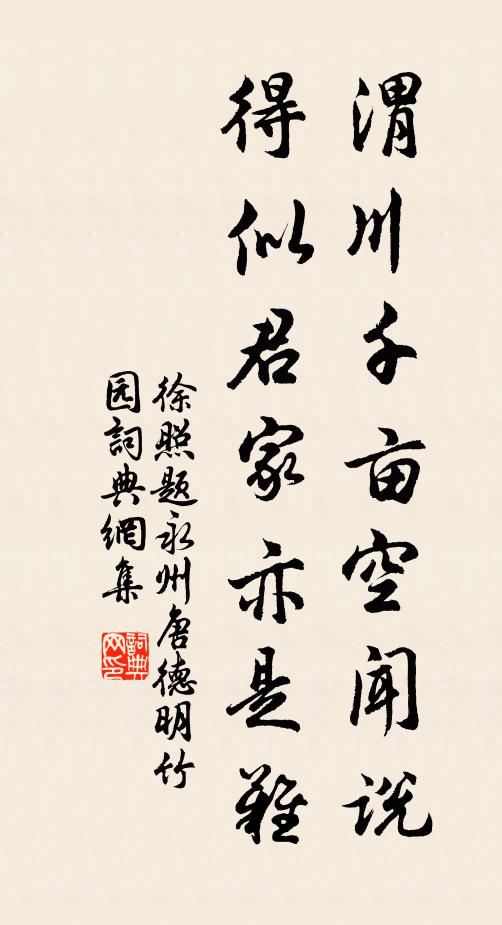 渭川千亩空闻説
得似君家亦是難
徐照题永州唐德明竹
园詞典網集
詞典
网印